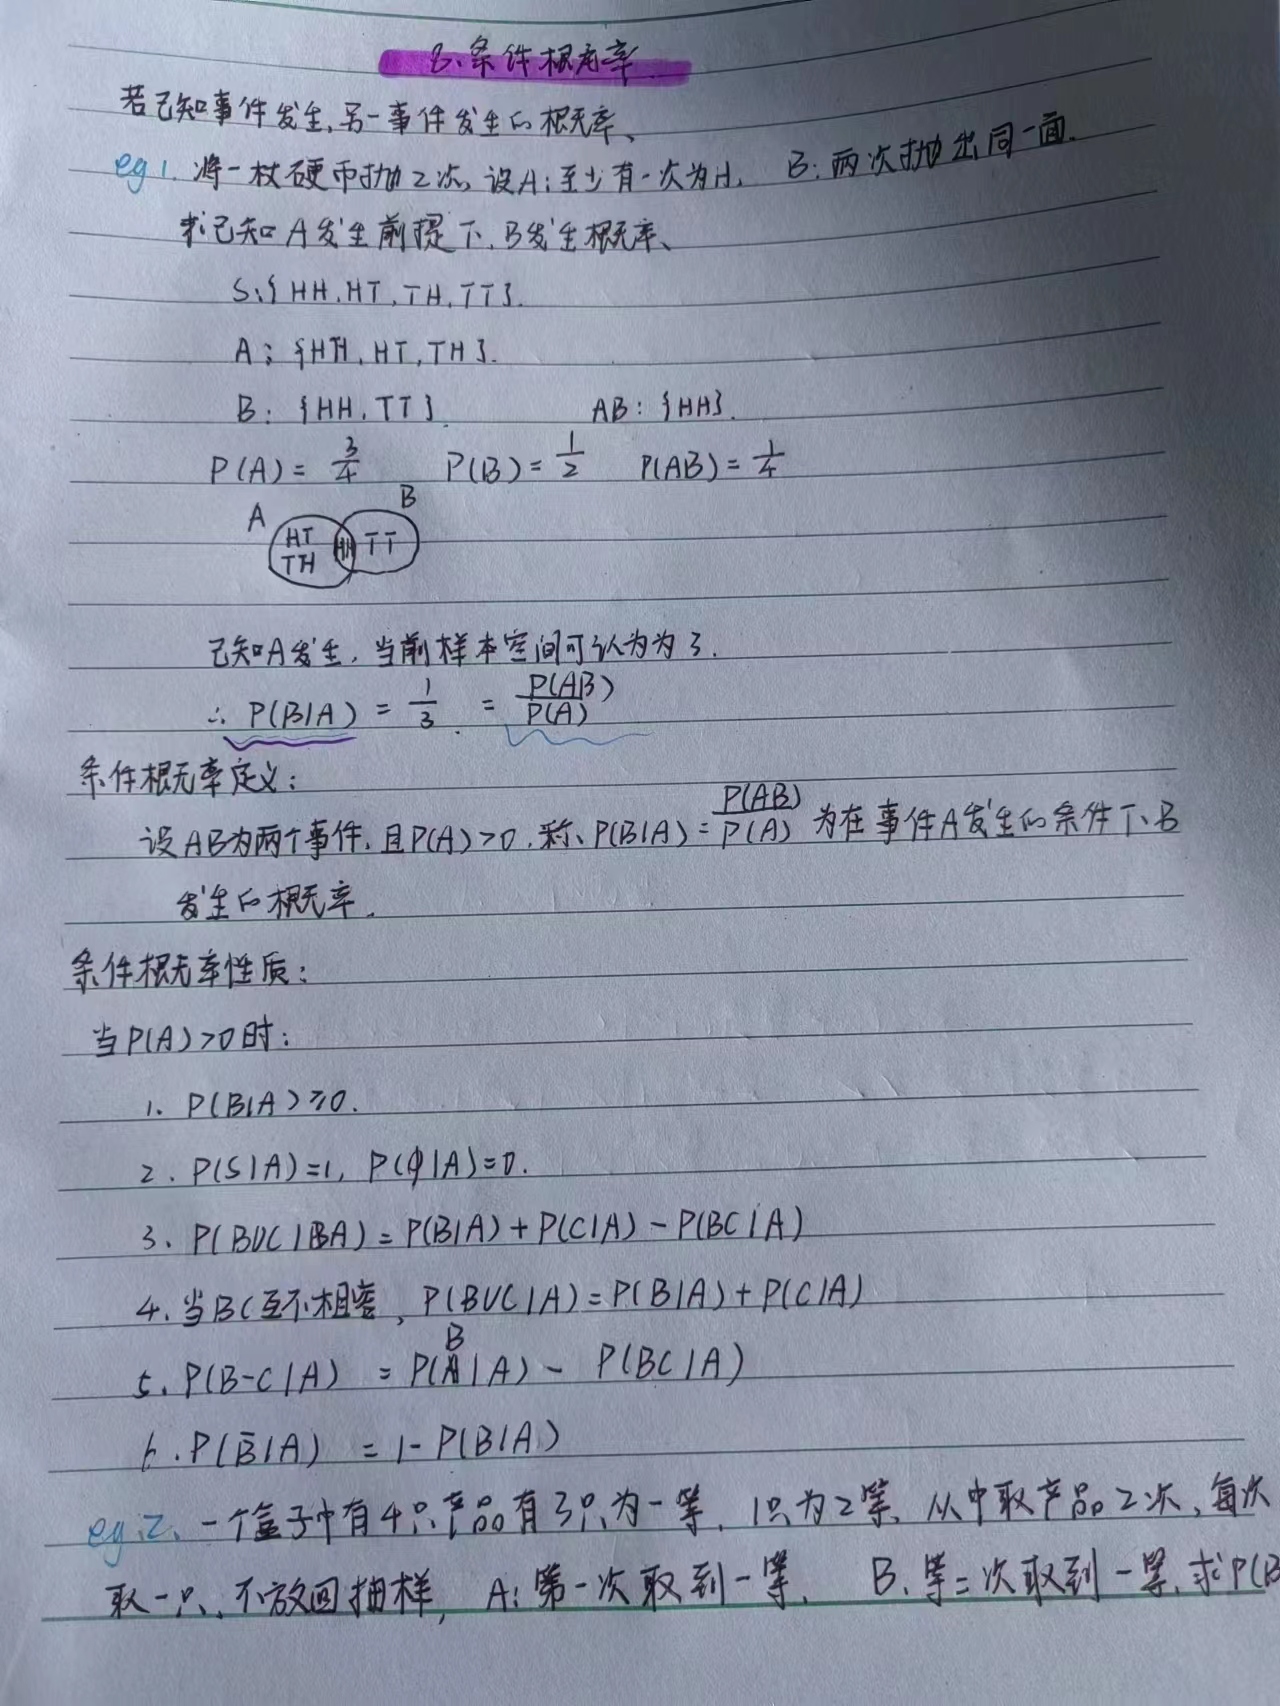 6、条件概率
若已知事件发生,另一事件发生的概率、
eg 1. 将一枚硬币抛2次, 设A:至少有一次为H, B:两次抛出同一面.
求已知A发生前提下,B发生概率、
S:{HH,HT,TH,TT}.
A:{HH,HT,TH}.
B:{HH,TT} AB:{HH}.
P(A)=3/4 P(B)=1/2 P(AB)=1/4
A B
HT HH TT
TH
已知A发生,当前样本空间可认为为3.
∴ P(B|A) = 1/3 = P(AB)/P(A)
条件概率定义:
设AB为两个事件,且P(A)>0,称、P(B|A)=P(AB)/P(A)为在事件A发生的条件下、B
发生的概率.
条件概率性质:
当P(A)>0时:
1. P(B|A)≥0.
2. P(S|A)=1, P(φ|A)=0.
3. P(BUC|A)=P(B|A)+P(C|A)-P(BC|A)
4. 当BC互不相容,P(BUC|A)=P(B|A)+P(C|A)
5. P(B-C|A) = P(B|A) - P(BC|A)
6. P(B̄|A) = 1-P(B|A)
eg.2、一个盒子中有4只产品有3只为一等,1只为2等,从中取产品2次,每次
取一只,不放回抽样, A:第一次取到一等, B、第二次取到一等,求P(B